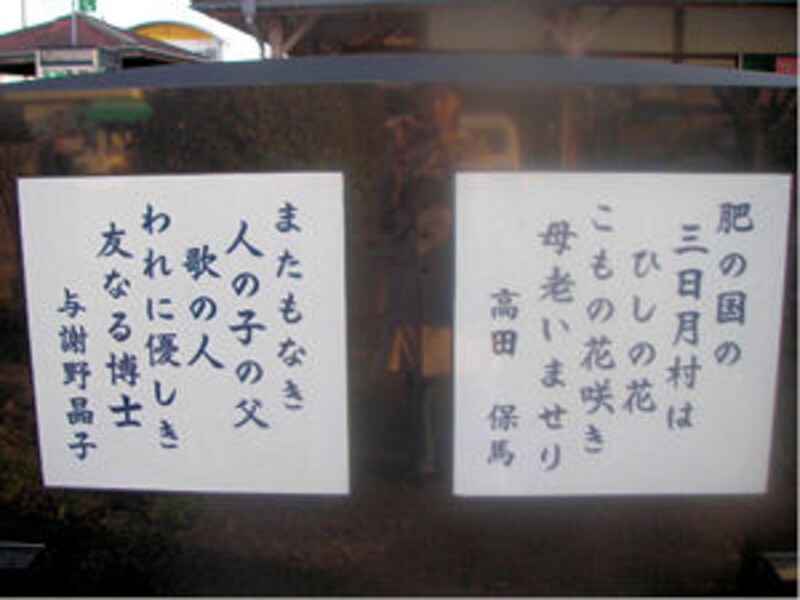 肥の国の
三日月村は
ひしの花
こもの花咲き
母老いませり
高田 保馬
またもなき
人の子の父
歌の人
われに優しき
友なる博士
与謝野晶子